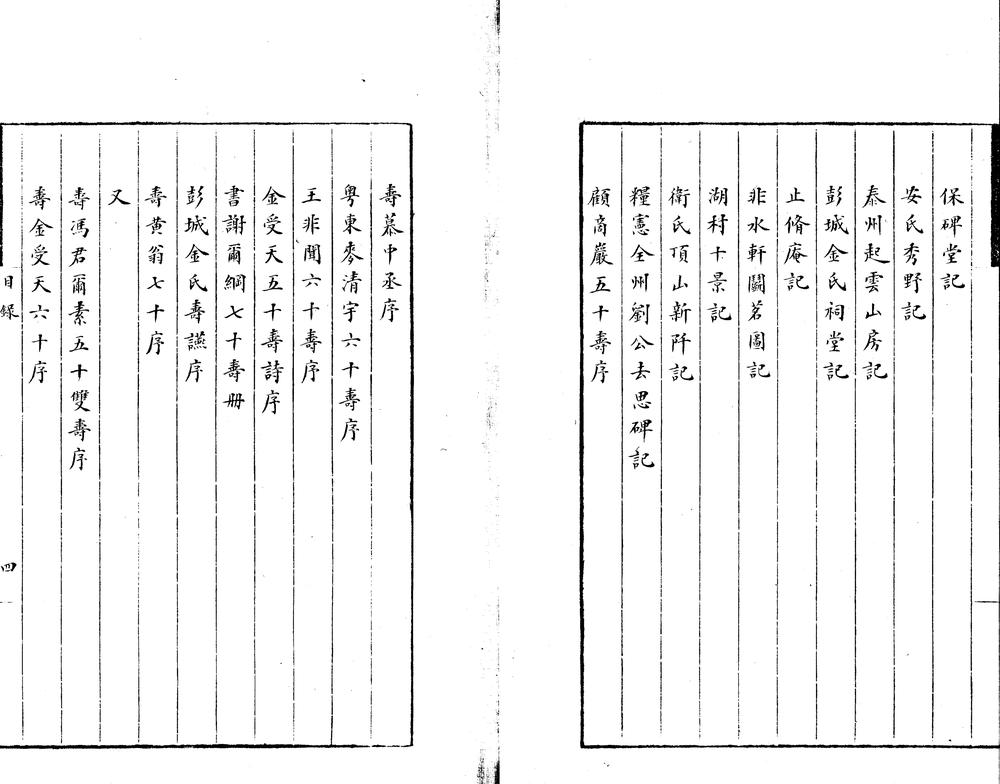 保碑堂記
安氏秀野記
泰州起雲山房記
彭城金氏祠堂記
止脩庵記
非水軒鬭茗圖記
湖村十景記
衛氏頂山新阡記
糧憲全州劉公去思碑記
顧商巖五十壽序
壽慕中丞序
粤東麥清宇六十壽序
王非聞六十壽序
金受天五十壽詩序
書謝爾綱七十壽册
彭城金氏壽讌序
壽黄翁七十序
又
壽馮君爾素五十雙壽序
壽金受天六十序
目録
四